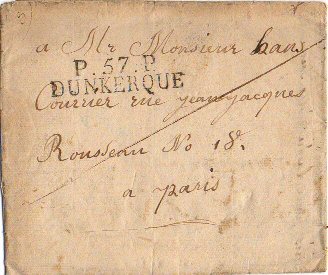 a Mr Monsieur haas
P. 57. P.
DUNKERQUE
Courrier rue jean jacques
Rousseau No 18.
a paris